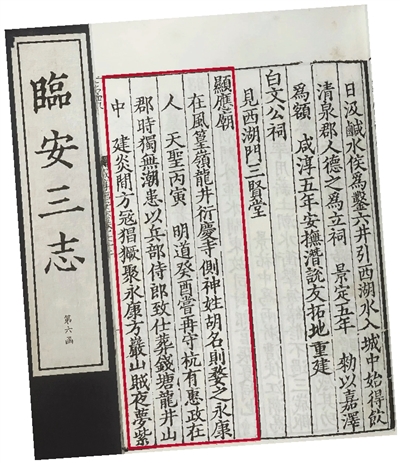 臨安三志
第六函
日汲鹹水侯爲鑿六井引西湖水入城中始得飲
清泉郡人德之爲立祠 景定五年 勑以嘉澤
爲額 咸淳五年安撫潛說友拓地重建
白文公祠
見西湖門三賢堂
顯應廟
在風篁嶺龍井衍慶寺側神姓胡名則婺之永康
人 天聖丙寅 明道癸酉嘗再守杭有惠政在
郡時獨無潮患以兵部侍郎致仕葬錢塘龍井山
中 建炎間方冦猖獗聚永康方巖山賊夜夢紫